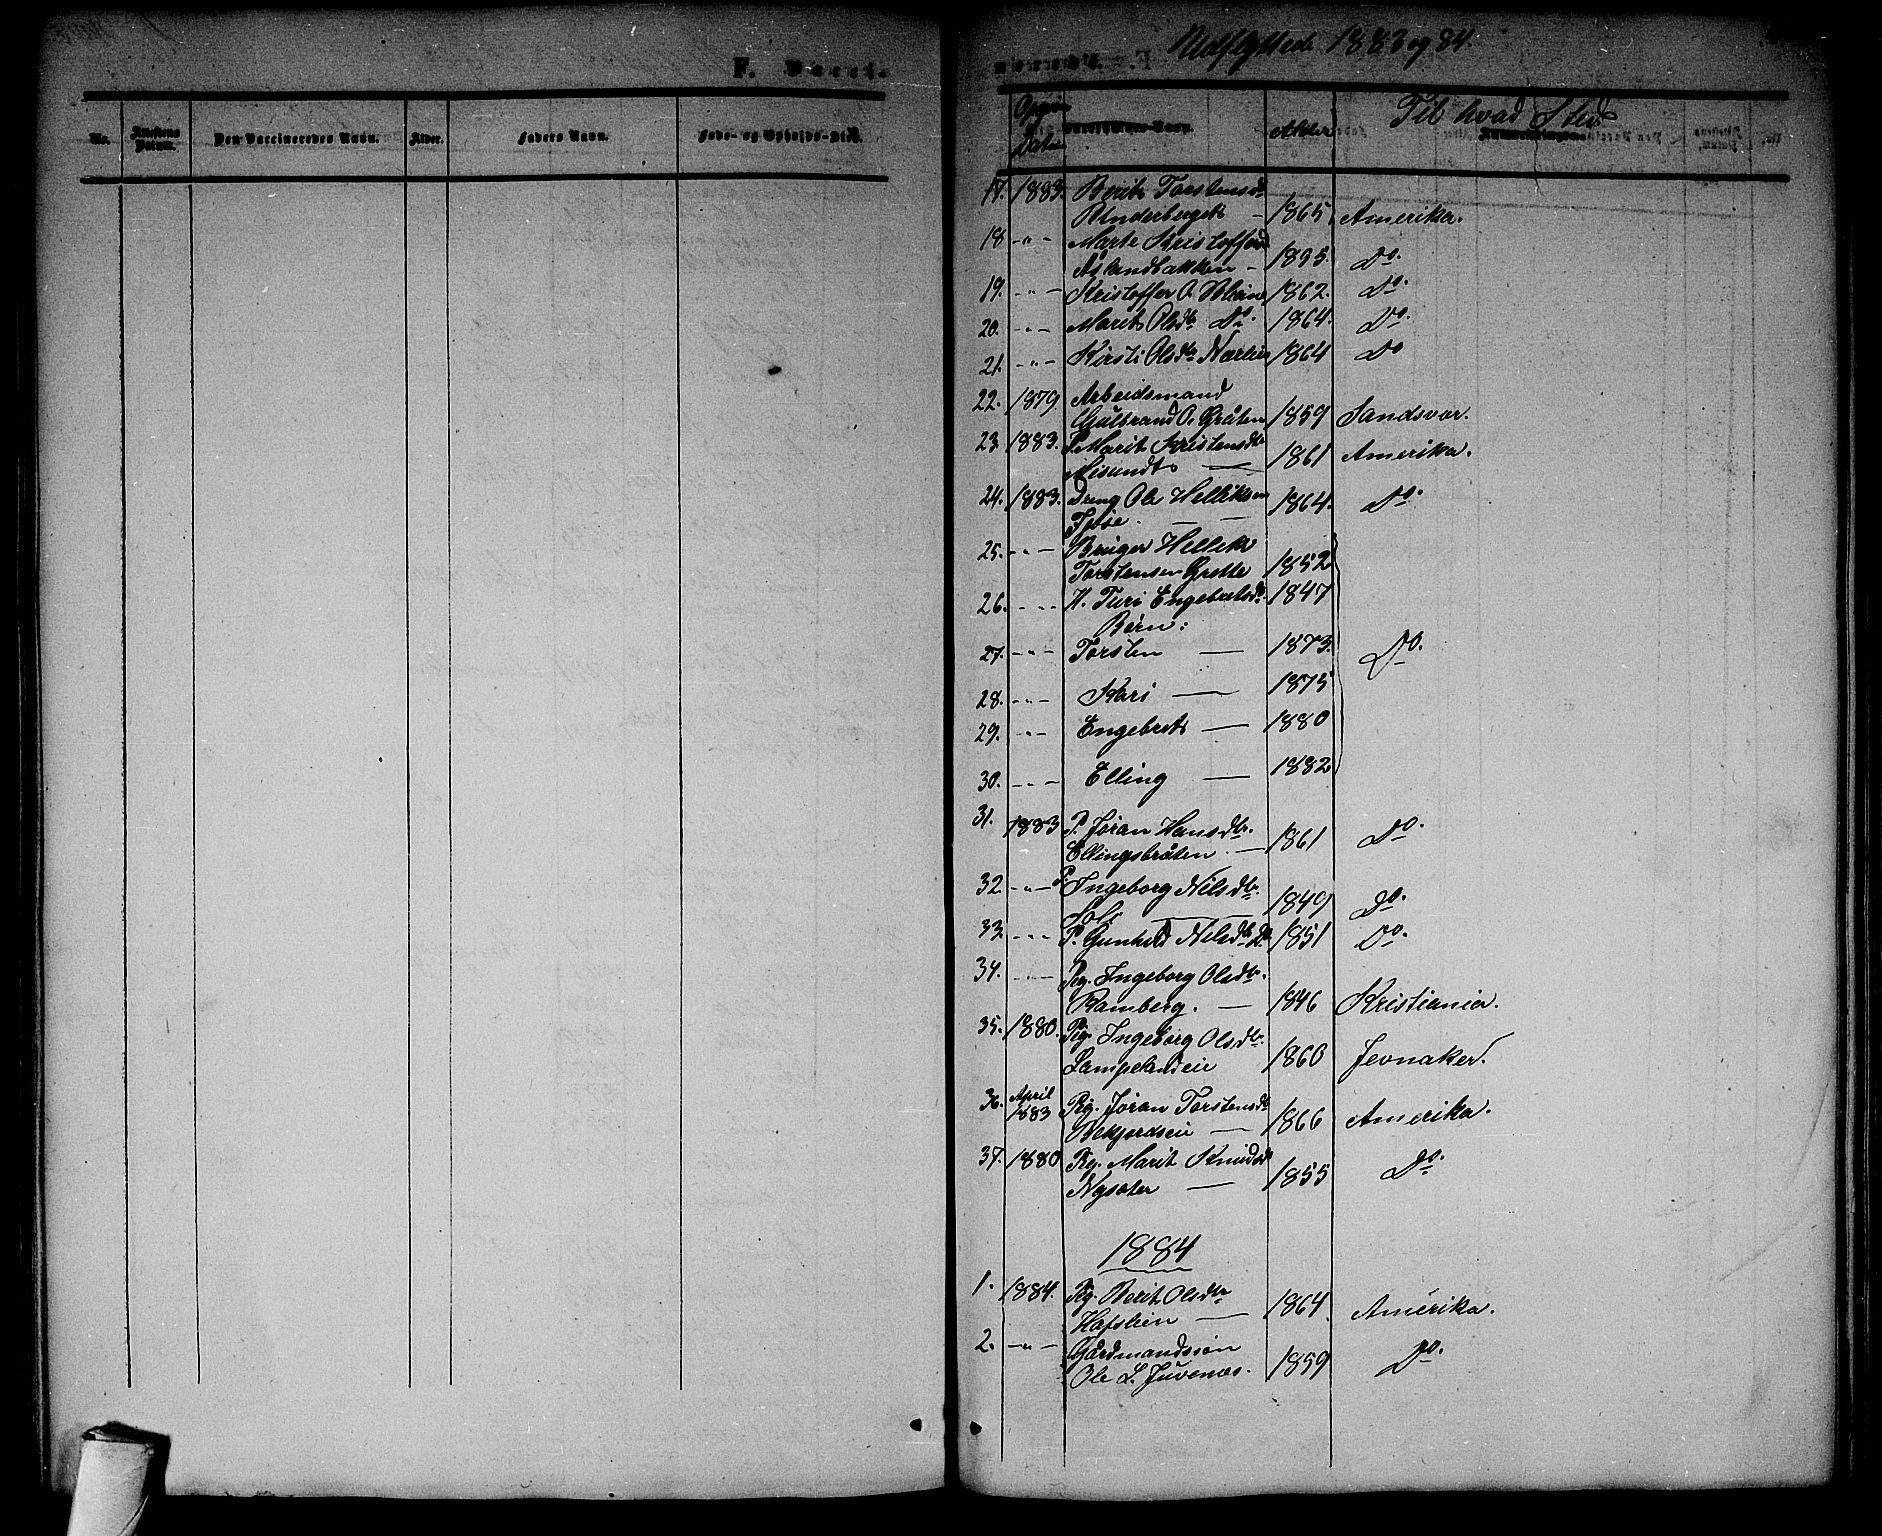 F. Vacci-
No.
Attestens Datum.
Den Vaccineredes Navn.
Alder.
Faders Navn.
Føde- og Opholds-Sted.
Udflyttede 1883 og 84.
Alder
Til hvad Sted
17. 1883. Berit Torstensdtr
- 1865. Amerika.
18 -"- Marte Kristoffersd
- 1835. Do.
19. -"- Kristoffer O. 1862. Do.
20. -"- Marit Olsdtr Do. 1864. Do.
21. -"- Kirsti Olsdtr 1864 Do
22. 1879. Arbeidsmand
Gulbrand O. Bråten 1859 Sandsvær.
23. 1883. P. Marit Kristensdtr
Misundt — 1861 Amerika.
24. 1883. Dreng Ole Helliksen
— 1864. Do.
25. -"- Bruger Hellik
Torstensen Grette 1852
26. -"- H. Turi Engebretsdtr. 1847
Børn:
27. -"- Torsten — 1873. Do.
28. -"- Kari — 1875
29. -"- Engebret — 1880
30. -"- Elling — 1882
31. 1883 P. Jøran Hansdtr.
Ellingsbråten. — 1861 Do.
32. -"- P. Ingeborg Nilsdtr.
— 1849 Do.
33. -"- P. Gunhild Nilsdtr Do 1851 Do.
34. -"- Pig. Ingeborg Olsdtr.
Ramberg. — 1846 Kristiania.
35. 1880. Pig. Ingeborg Olsdtr.
Lampelandseie 1860 Jevnaker.
36. April 1883 Pig. Jøran Torstensdtr
Bekjordseie — 1866 Amerika.
37. 1880 Pig. Marit Knudsd
Nysæter — 1855 Do.
1884
1. 1884. Pig. Berit Olsdtr
Hafslien — 1864. Amerika.
2. -"- Gårdmandssøn
Ole L. Juvenæs. 1859 Do.